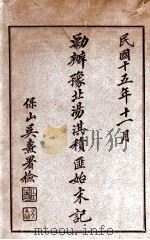 民國十五年十一月
勦辦豫北湯淇積匪始末記
保山吳燾署檢